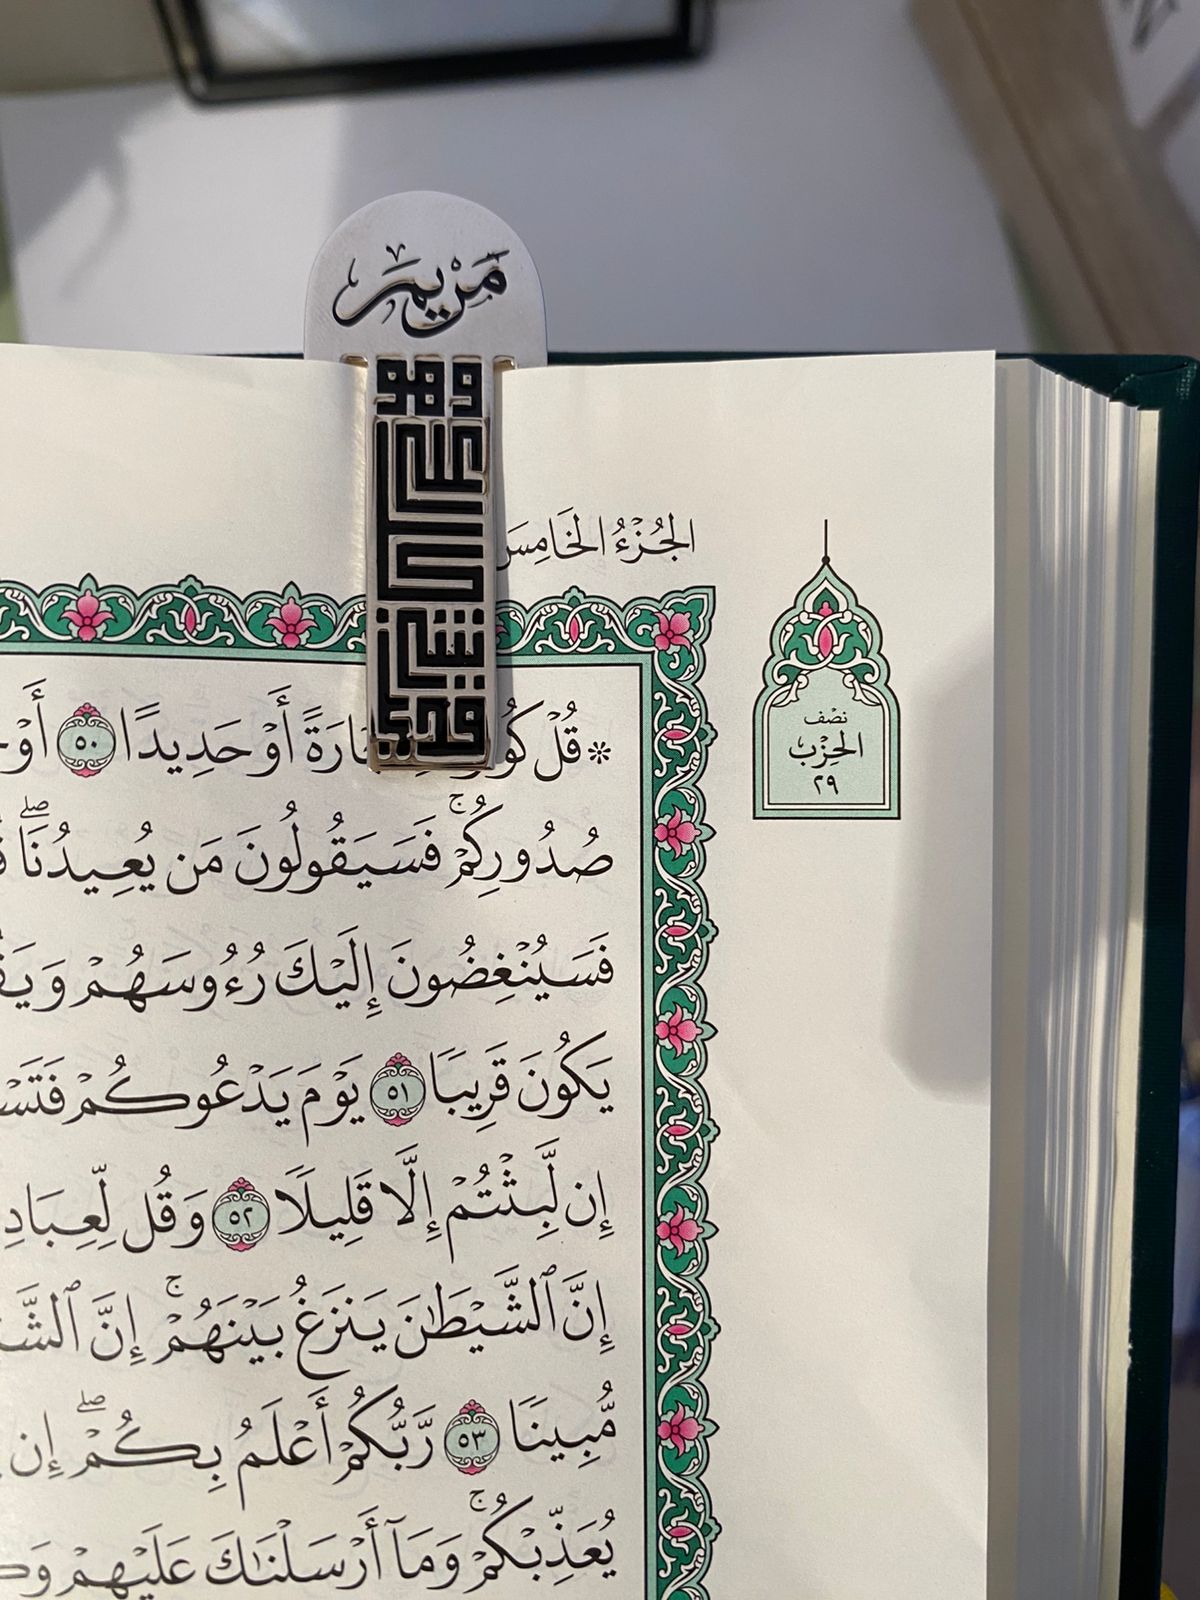 مَرْيَم
وهو على كل شيء قدير
الجُزْءُ الخَامِسَ
نصف
الحِزْب
٢٩
۞ قُلْ كُونُوا۟ حِجَارَةً أَوْ حَدِيدًا ٥٠ أَوْ
صُدُورِكُمْ ۚ فَسَيَقُولُونَ مَن يُعِيدُنَا ۖ
فَسَيُنْغِضُونَ إِلَيْكَ رُءُوسَهُمْ وَيَقُ
يَكُونَ قَرِيبًا ٥١ يَوْمَ يَدْعُوكُمْ فَتَسْ
إِن لَّبِثْتُمْ إِلَّا قَلِيلًا ٥٢ وَقُل لِّعِبَادِ
إِنَّ ٱلشَّيْطَٰنَ يَنزَغُ بَيْنَهُمْ ۚ إِنَّ ٱلشَّ
مُّبِينًا ٥٣ رَّبُّكُمْ أَعْلَمُ بِكُمْ ۖ إِن
يُعَذِّبْكُمْ ۚ وَمَآ أَرْسَلْنَٰكَ عَلَيْهِمْ وَكِ